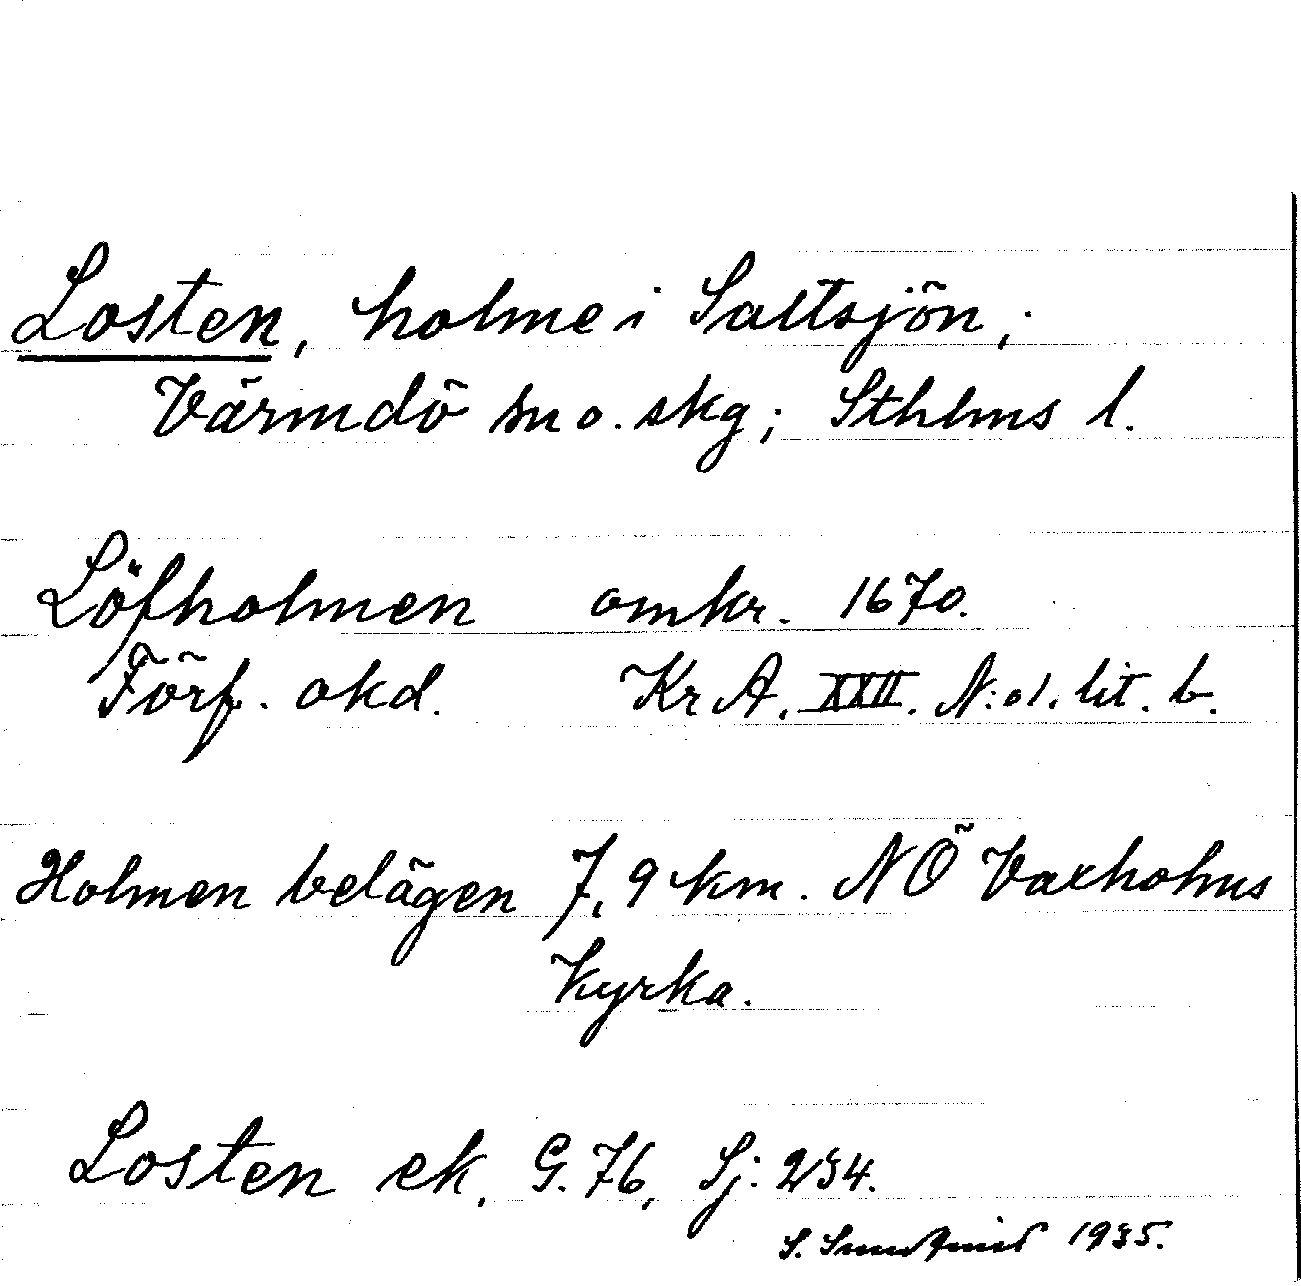 Losten, holme i Saltsjön,;
Värmdö sn o. skg; Sthlms l.
Löfholmen omkr. 1670.
Förf. okd. Kr A. XXII. N:o 1. lit. b.
Holmen belägen 7,9 km. NÖ Vaxholms
Kyrka.
Losten ek. G. 76, Sj: 234.
S. 1935.